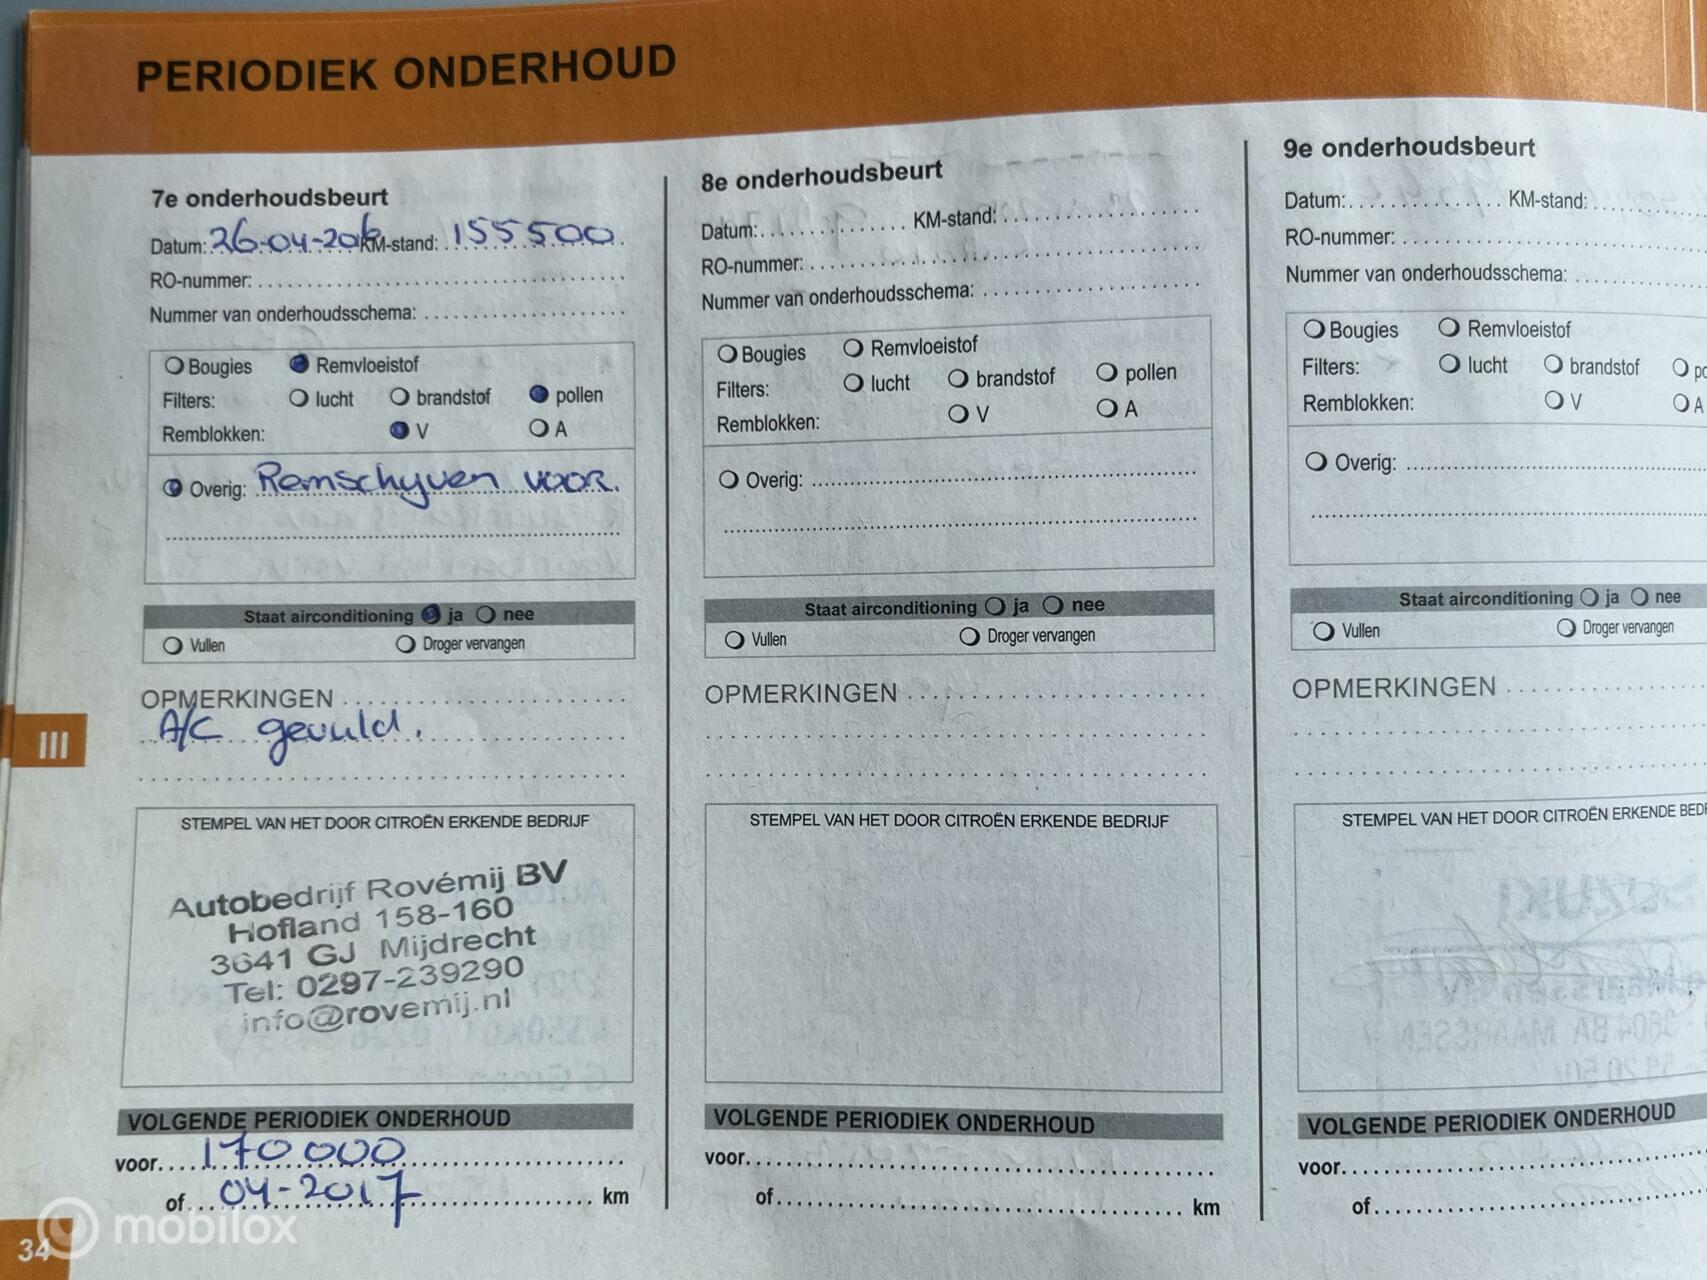 PERIODIEK ONDERHOUD
7e onderhoudsbeurt
Datum: 26-04-2016 KM-stand: 155500
RO-nummer:
Nummer van onderhoudsschema:
Bougies Remvloeistof
Filters: lucht brandstof pollen
Remblokken: V A
Overig: Remschyven voor.
Staat airconditioning ja nee
Vullen Droger vervangen
OPMERKINGEN
A/C gevuld.
STEMPEL VAN HET DOOR CITROËN ERKENDE BEDRIJF
Autobedrijf Rovémij BV
Hofland 158-160
3641 GJ Mijdrecht
Tel: 0297-239290
info@rovemij.nl
VOLGENDE PERIODIEK ONDERHOUD
voor 170 000
of 04-2017 km
8e onderhoudsbeurt
Datum: KM-stand:
RO-nummer:
Nummer van onderhoudsschema:
Bougies Remvloeistof
Filters: lucht brandstof pollen
Remblokken: V A
Overig:
Staat airconditioning ja nee
Vullen Droger vervangen
OPMERKINGEN
STEMPEL VAN HET DOOR CITROËN ERKENDE BEDRIJF
VOLGENDE PERIODIEK ONDERHOUD
voor
of km
9e onderhoudsbeurt
Datum: KM-stand:
RO-nummer:
Nummer van onderhoudsschema:
Bougies Remvloeistof
Filters: lucht brandstof
Remblokken: V A
Overig:
Staat airconditioning ja nee
Vullen Droger vervangen
OPMERKINGEN
STEMPEL VAN HET DOOR CITROËN ERKENDE
VOLGENDE PERIODIEK ONDERHOUD
voor
of
III
34
mobilox